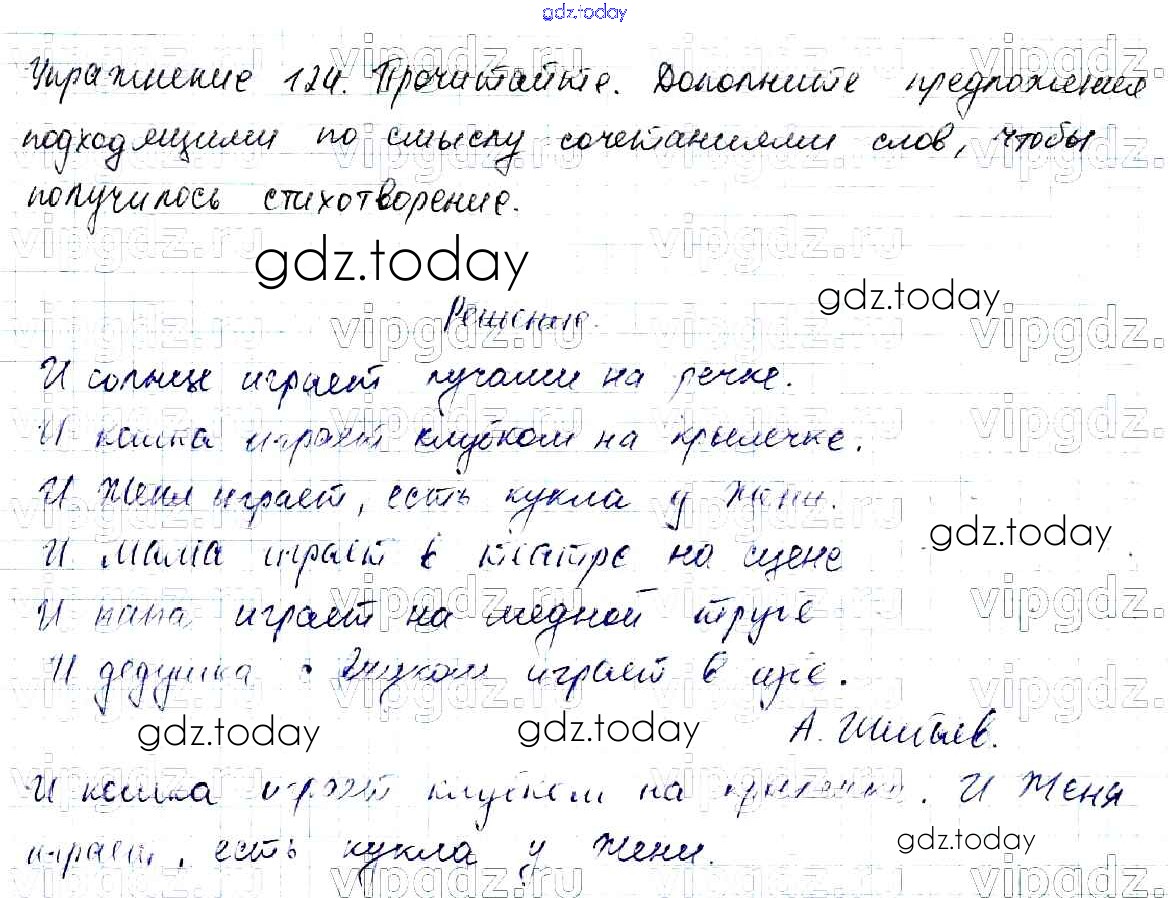 gdz.today
Упражнение 124. Прочитайте. Дополните предложения
подходящими по смыслу сочетаниями слов, чтобы
получилось стихотворение.
gdz.today
gdz.today
Решение.
И солнце играет лучами на речке.
И кошка играет клубком на крылечке.
И Женя играет, есть кукла у Жени.
gdz.today
И мама играет в театре на сцене
И папа играет на медной трубе
И дедушка с внуком играет в избе.
gdz.today
gdz.today
А. Шибаев.
И кошка играет клубком на крылечке. И Женя
играет, есть кукла у Жени.
gdz.today